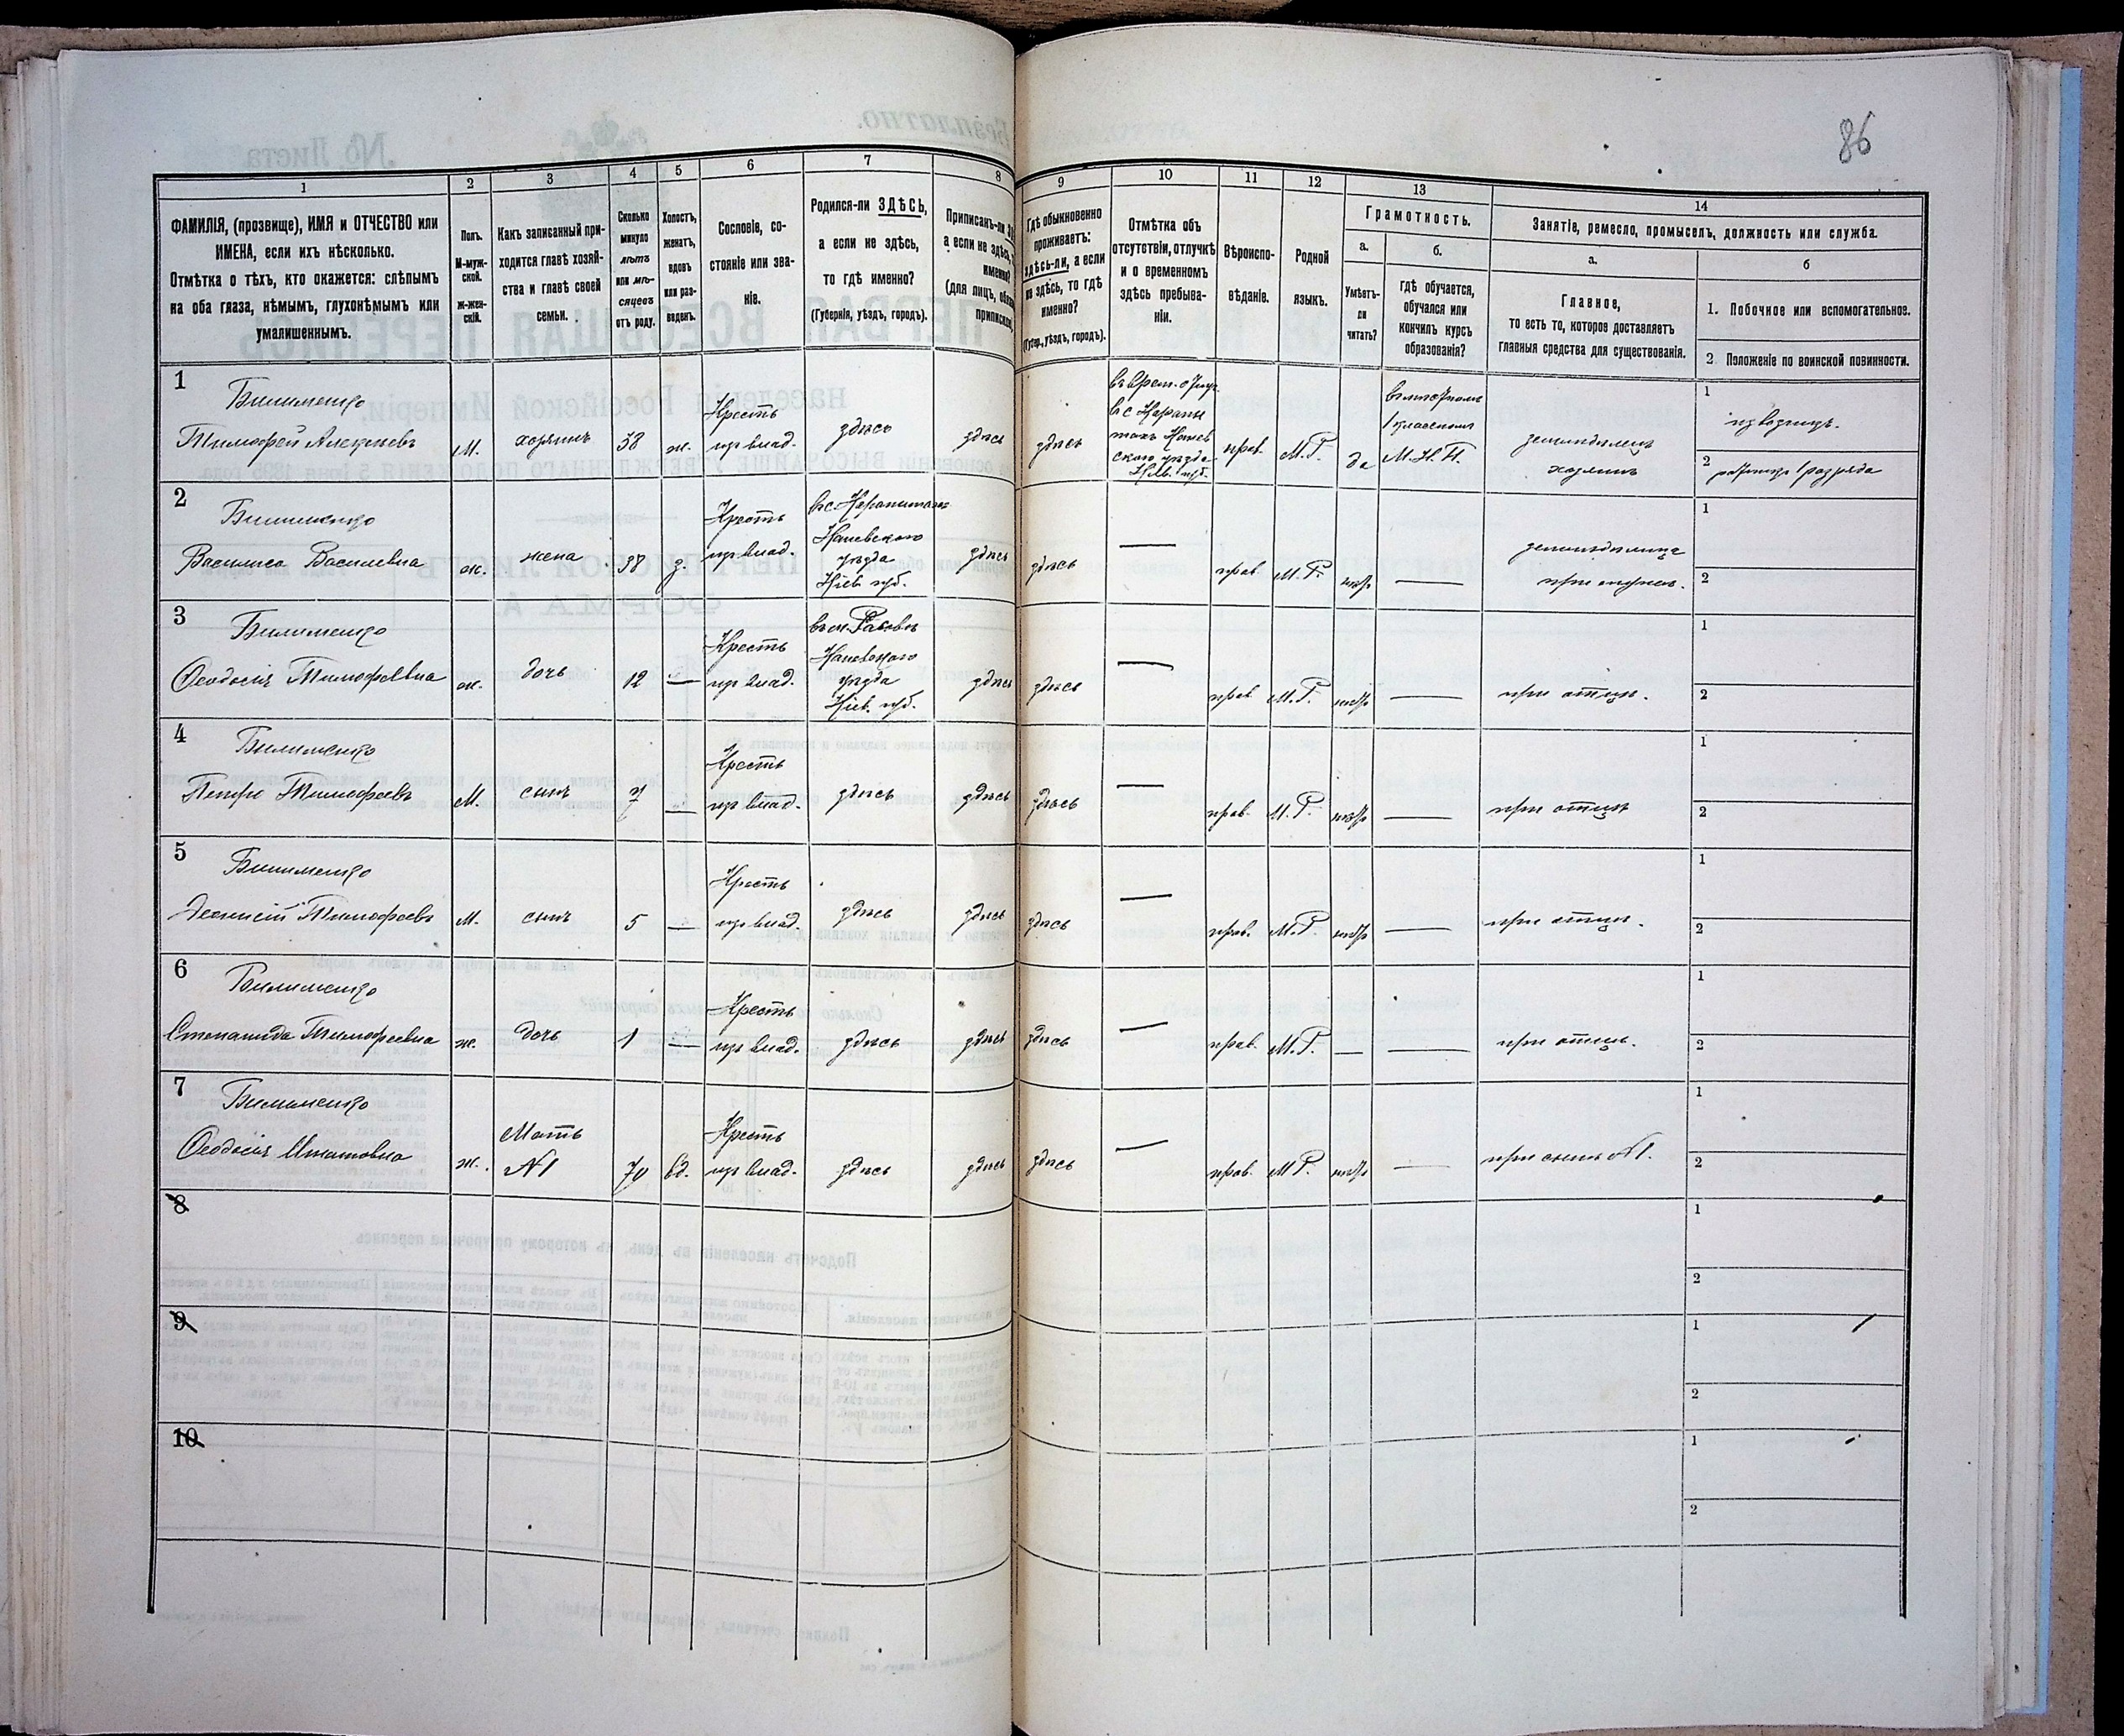 86
1
2
3
4
5
6
7
8
9
10
11
12
13
14
ФАМИЛІЯ, (прозвище), ИМЯ и ОТЧЕСТВО или
ИМЕНА, если ихъ нѣсколько.
Отмѣтка о тѣхъ, кто окажется: слѣпымъ
на оба глаза, нѣмымъ, глухонѣмымъ или
умалишеннымъ.
Полъ.
М-муж-
ской.
ж-жен-
скій.
Какъ записанный при-
ходится главѣ хозяй-
ства и главѣ своей
семьи.
Сколько
минуло
лѣтъ
или мѣ-
сяцевъ
отъ роду.
Холостъ,
женатъ,
вдовъ
или раз-
веденъ.
Сословіе, со-
стояніе или зва-
ніе.
Родился-ли ЗДѢСЬ,
а если не здѣсь,
то гдѣ именно?
(Губернія, уѣздъ, городъ).
Приписанъ-ли
а если не здѣсь,
именно?
(для лицъ,
Гдѣ обыкновенно
проживаетъ:
здѣсь-ли, а если
не здѣсь, то гдѣ
именно?
(Губер., уѣздъ, городъ).
Отмѣтка объ
отсутствіи, отлучкѣ
и о временномъ
здѣсь пребыва-
ніи.
Вѣроиспо-
вѣданіе.
Родной
языкъ.
Грамотность.
а.
Умѣетъ-
ли
читать?
б.
гдѣ обучается,
обучался или
кончилъ курсъ
образованія?
Занятіе, ремесло, промыселъ, должность или служба.
а.
Главное,
то есть то, которое доставляетъ
главныя средства для существованія.
б
1. Побочное или вспомогательное.
2. Положеніе по воинской повинности.
1
Билименко
Тимофей Алексѣевъ
М.
хозяинъ
38
ж.
Крестъ
из влад.
здѣсь
здѣсь
здѣсь
прав.
М.Р.
да
М.Н.П.
земледѣлецъ
хозяинъ
1
извозчикъ.
2
1 разряда
2
Билименко
Василиса Василевна
ж.
жена
38
з.
Крестъ
из влад.
Каневского
уѣзда
Кіев. губ.
здѣсь
здѣсь
—
прав.
М.Р.
нѣтъ
—
земледѣлица
при мужѣ.
1
2
3
Билименко
Феодосія Тимофеевна
ж.
дочь
12
—
Крестъ
из влад.
Каневского
уѣзда
Кіев. губ.
здѣсь
здѣсь
—
прав
М.Р.
нѣтъ
—
при отцѣ.
1
2
4
Билименко
Петръ Тимофеевъ
М.
сынъ
7
—
Крестъ
из влад.
здѣсь
здѣсь
здѣсь
—
прав.
М.Р.
нѣтъ
—
при отцѣ
1
2
5
Билименко
Тимофеевъ
М.
сынъ
5
—
Крестъ
из влад.
здѣсь
здѣсь
здѣсь
—
прав.
М.Р.
нѣтъ
—
при отцѣ.
1
2
6
Билименко
Степанида Тимофеевна
ж.
дочь
1
—
Крестъ
из влад.
здѣсь
здѣсь
здѣсь
—
прав.
М.Р.
—
—
при отцѣ.
1
2
7
Билименко
Феодосія Игнатовна
ж.
Мать
№1
70
вд.
Крестъ
из влад.
здѣсь
здѣсь
здѣсь
—
прав.
М Р.
нѣтъ
—
при сынѣ №1.
1
2
8
1
2
9
1
2
10
1
2